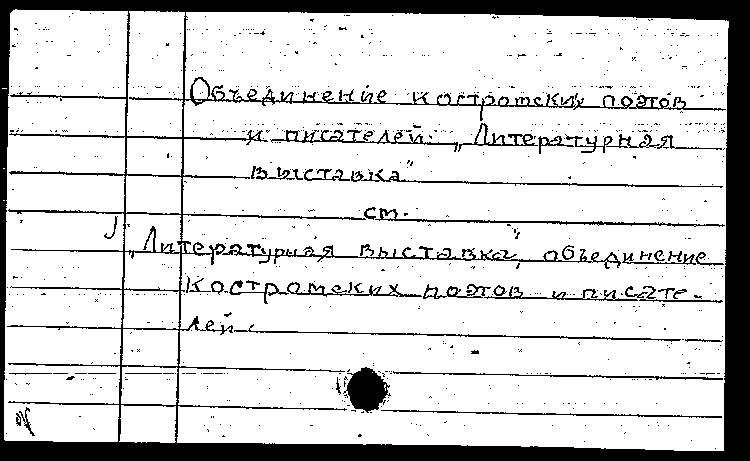 Объединение костромских поэтов
и писателей. „Литературная
выставка"
ст.
„Литературная выставка", объединение
костромских поэтов и писате-
лей.